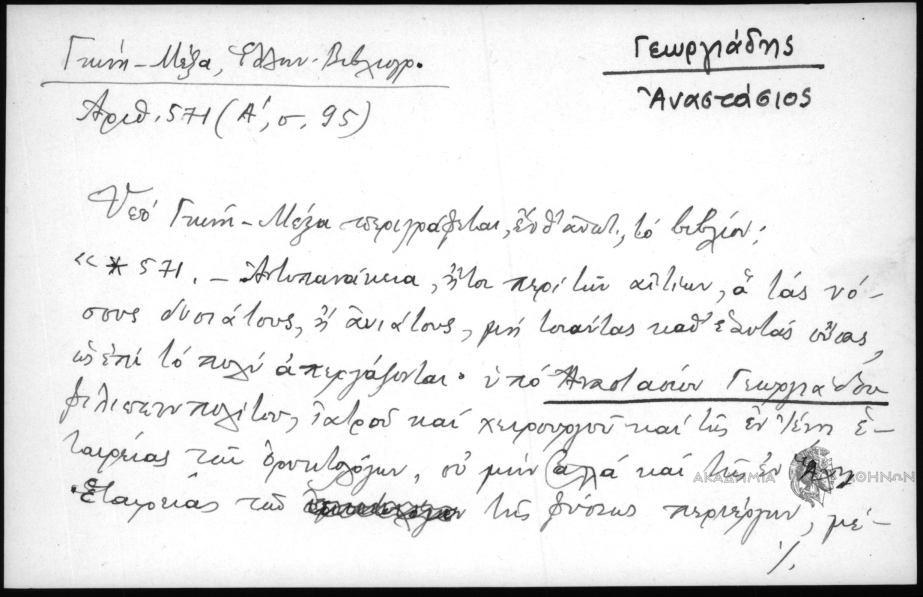 Γκίνη-Μέξα, Ἑλλην. Βιβλιογρ.
Γεωργιάδης
Ἀριθ. 571 (Α΄, σ. 95)
Ἀναστάσιος
Ὑπό Γκίνη-Μέξα περιγράφεται, ἔνθ' ἀνωτ., τό βιβλίον:
«* 571. – Ἀντιπανάκεια, ἤτοι περί τῶν αἰτίων, ἅ τάς νό-
σους δυσιάτους, ἤ ἀνιάτους, μή τοιαύτας καθ' ἑαυτάς οὔσας,
ὡς ἐπί τό πολύ ἀπεργάζονται· ὑπό Ἀναστασίου Γεωργιάδου
φιλιππουπολίτου, ἰατροῦ καί χειρουργοῦ καί τῆς ἐν Ἰένῃ ἑ-
ταιρείας τῶν ὀρυκτολόγων, οὐ μήν ἀλλά καί τῆς ἐν
Ἑταιρείας τῶν τῆς φύσεως περιέργων, μέ-
./.
ΑΚΑΔΗΜΙΑ ΑΘΗΝΩΝ